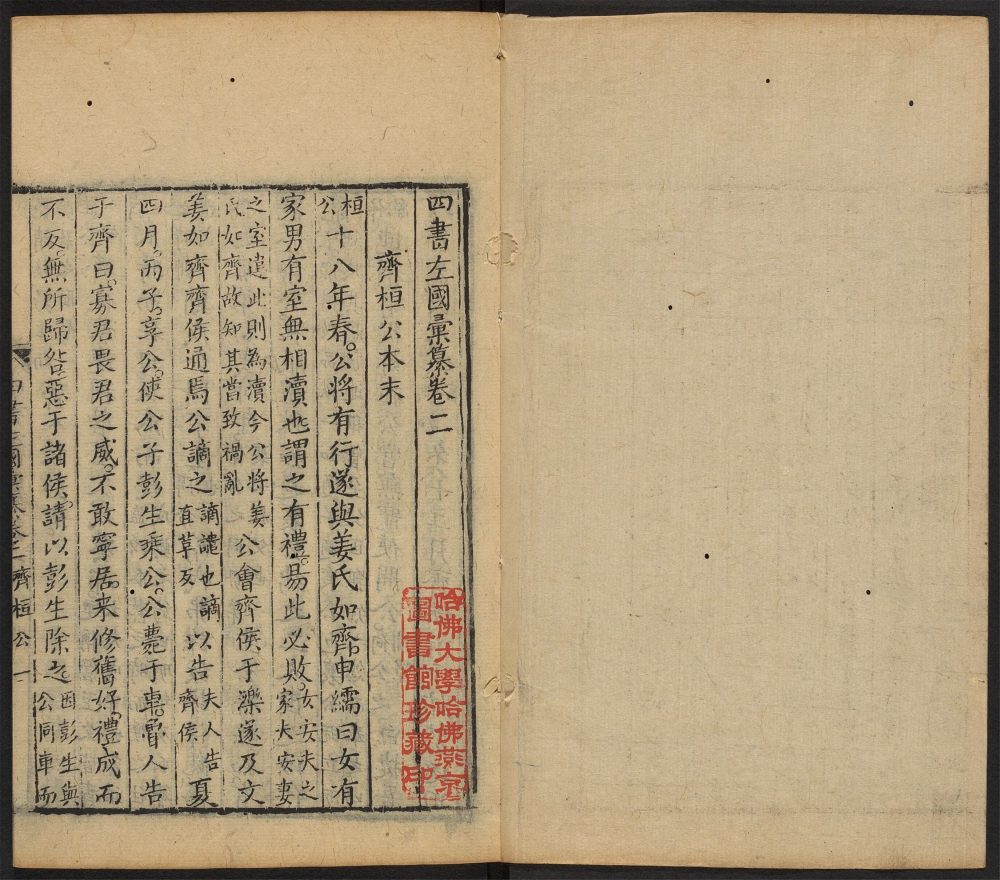 四書左國彙纂卷二
齊桓公本末
桓公十八年春。公將有行遂與姜氏如齊。申繻曰女有
家男有室無相瀆也謂之有禮。易此必敗。女安夫之家夫安妻
之室違此則為瀆今公將姜氏如齊故知其當致禍亂公會齊侯于濼遂及文
姜如齊齊侯通焉公謫之謫譴也謫直革反以告夫人告齊侯夏
四月。丙子。享公。使公子彭生乘公。公薨于車。魯人告
于齊曰。寡君畏君之威。不敢寧居。来修舊好。禮成而
不反。無所歸咎。惡于諸侯。請以彭生除之因彭生與公同車而
四書左國彙纂卷二 齊桓公 一
哈佛大學哈佛燕京
圖書館珍藏印